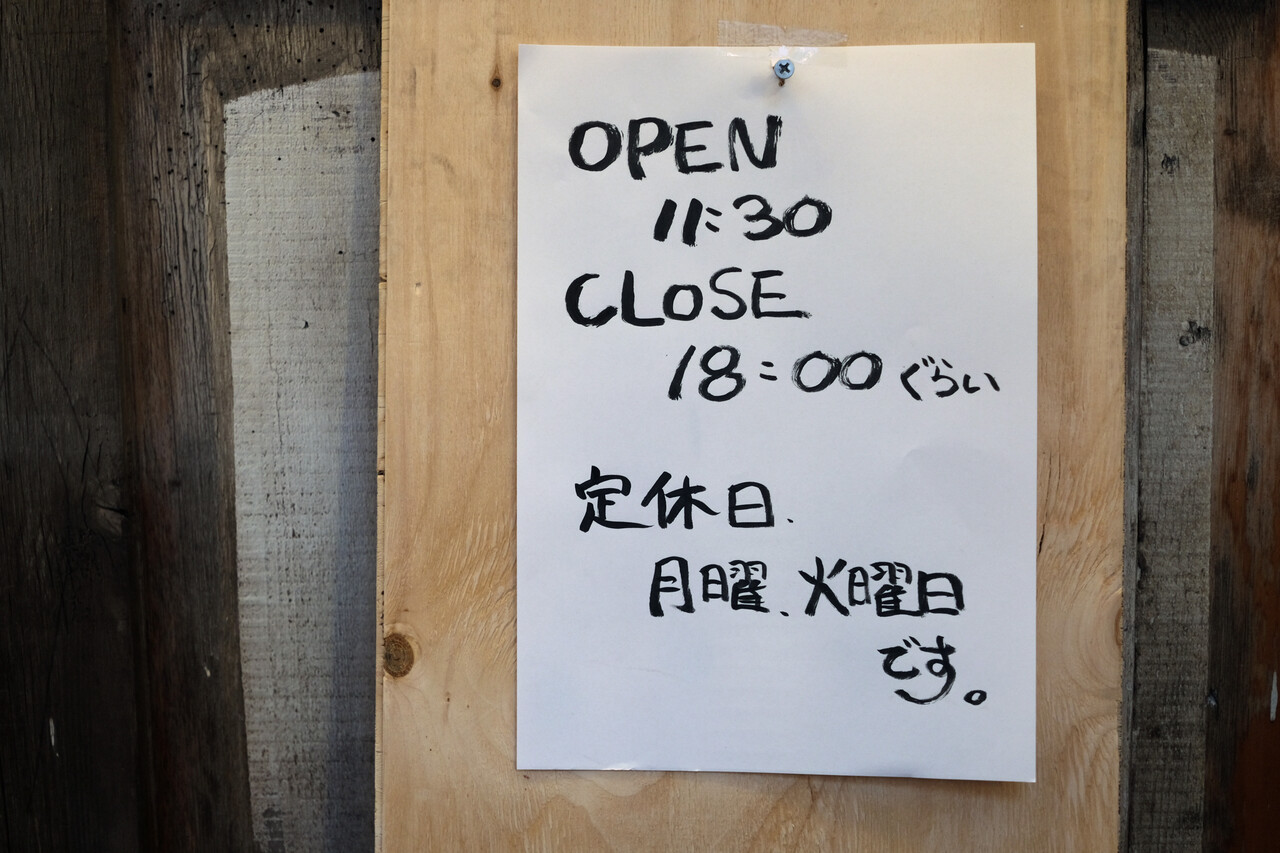 OPEN
11:30
CLOSE
18:00ぐらい
定休日、
月曜、火曜日
です。